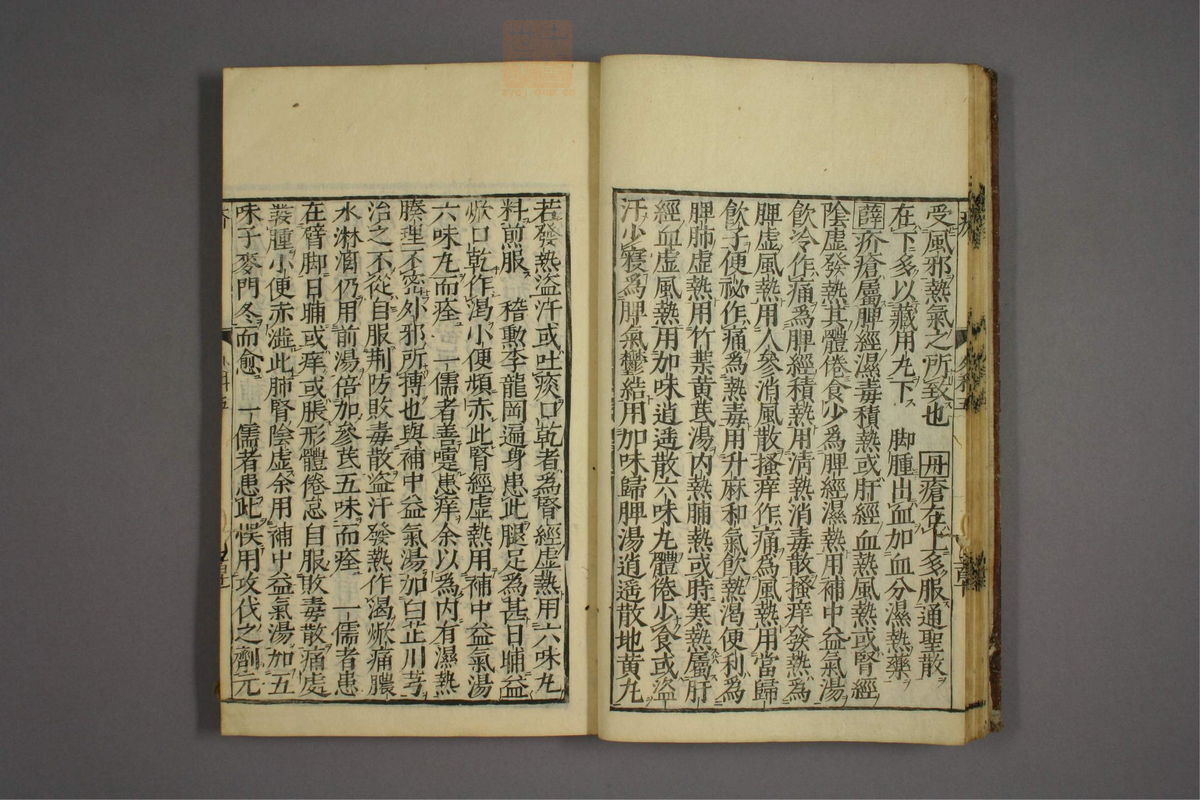 受風邪熱氣之所致也　丹瘡在上多服通聖散
在下多以藏用丸下　脚腫出血加血分濕熱藥
薛疥瘡屬脾經濕毒積熱或肝經血熱風熱或腎經
陰虛發熱其體倦食少爲脾經濕熱用補中益氣湯
飲冷作痛爲脾經積熱用清熱消毒散搔痒發熱爲
脾虛風熱用人參消風散搔痒作痛爲風熱用當歸
飲子便秘作痛爲熱毒用升麻和氣飲熱渴便利爲
脾肺虛熱用竹葉黃芪湯内熱晡熱或時寒熱屬肝
經血虛風熱用加味逍遥散六味丸體倦少食或盗
汗少寢爲脾氣鬱結用加味歸脾湯逍遥散地黃丸
若發熱盗汗或吐痰口乾者爲腎經虛熱用六味丸
料煎服　稽勲李龍岡遍身患此腿足爲甚日晡益
焮口乾作渴小便頻赤此腎經虛熱用補中益氣湯
六味丸而痊　一儒者善嚏患痒余以爲内有濕熱
腠理不密外邪所搏也與補中益氣湯加白芷川芎
治之不從自服荆防敗毒散盗汗發熱作渴焮痛膿
水淋漓仍用前湯倍加參芪五味而痊　一儒者患
在臂脚日晡或痒或脹形體倦怠自服敗毒散痛處
發腫小便赤澁此肺腎陰虛余用補中益氣湯加五
味子麥門冬而愈　一儒者患此悮用攻伐之劑元